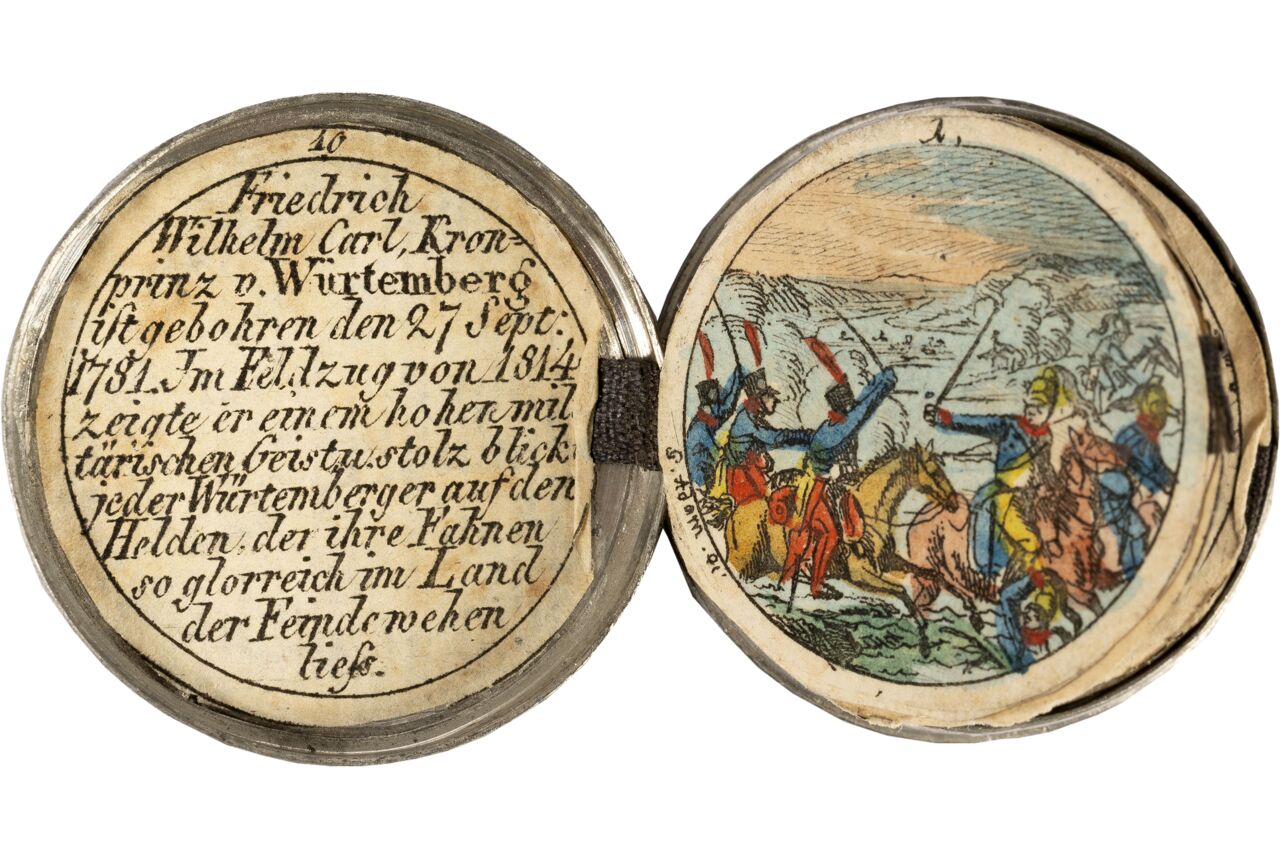 10
Friedrich
Wilhelm Carl, Kron=
prinz v. Würtemberg
ist gebohren den 27 Sept:
1781. Im Feldzug von 1814
zeigte er einem hohen mil
tärischen Geist u. stolz blick
jeder Würtemberger auf den
Helden, der ihre Fahnen
so glorreich im Land
der Feinde wehen
liess.
1.